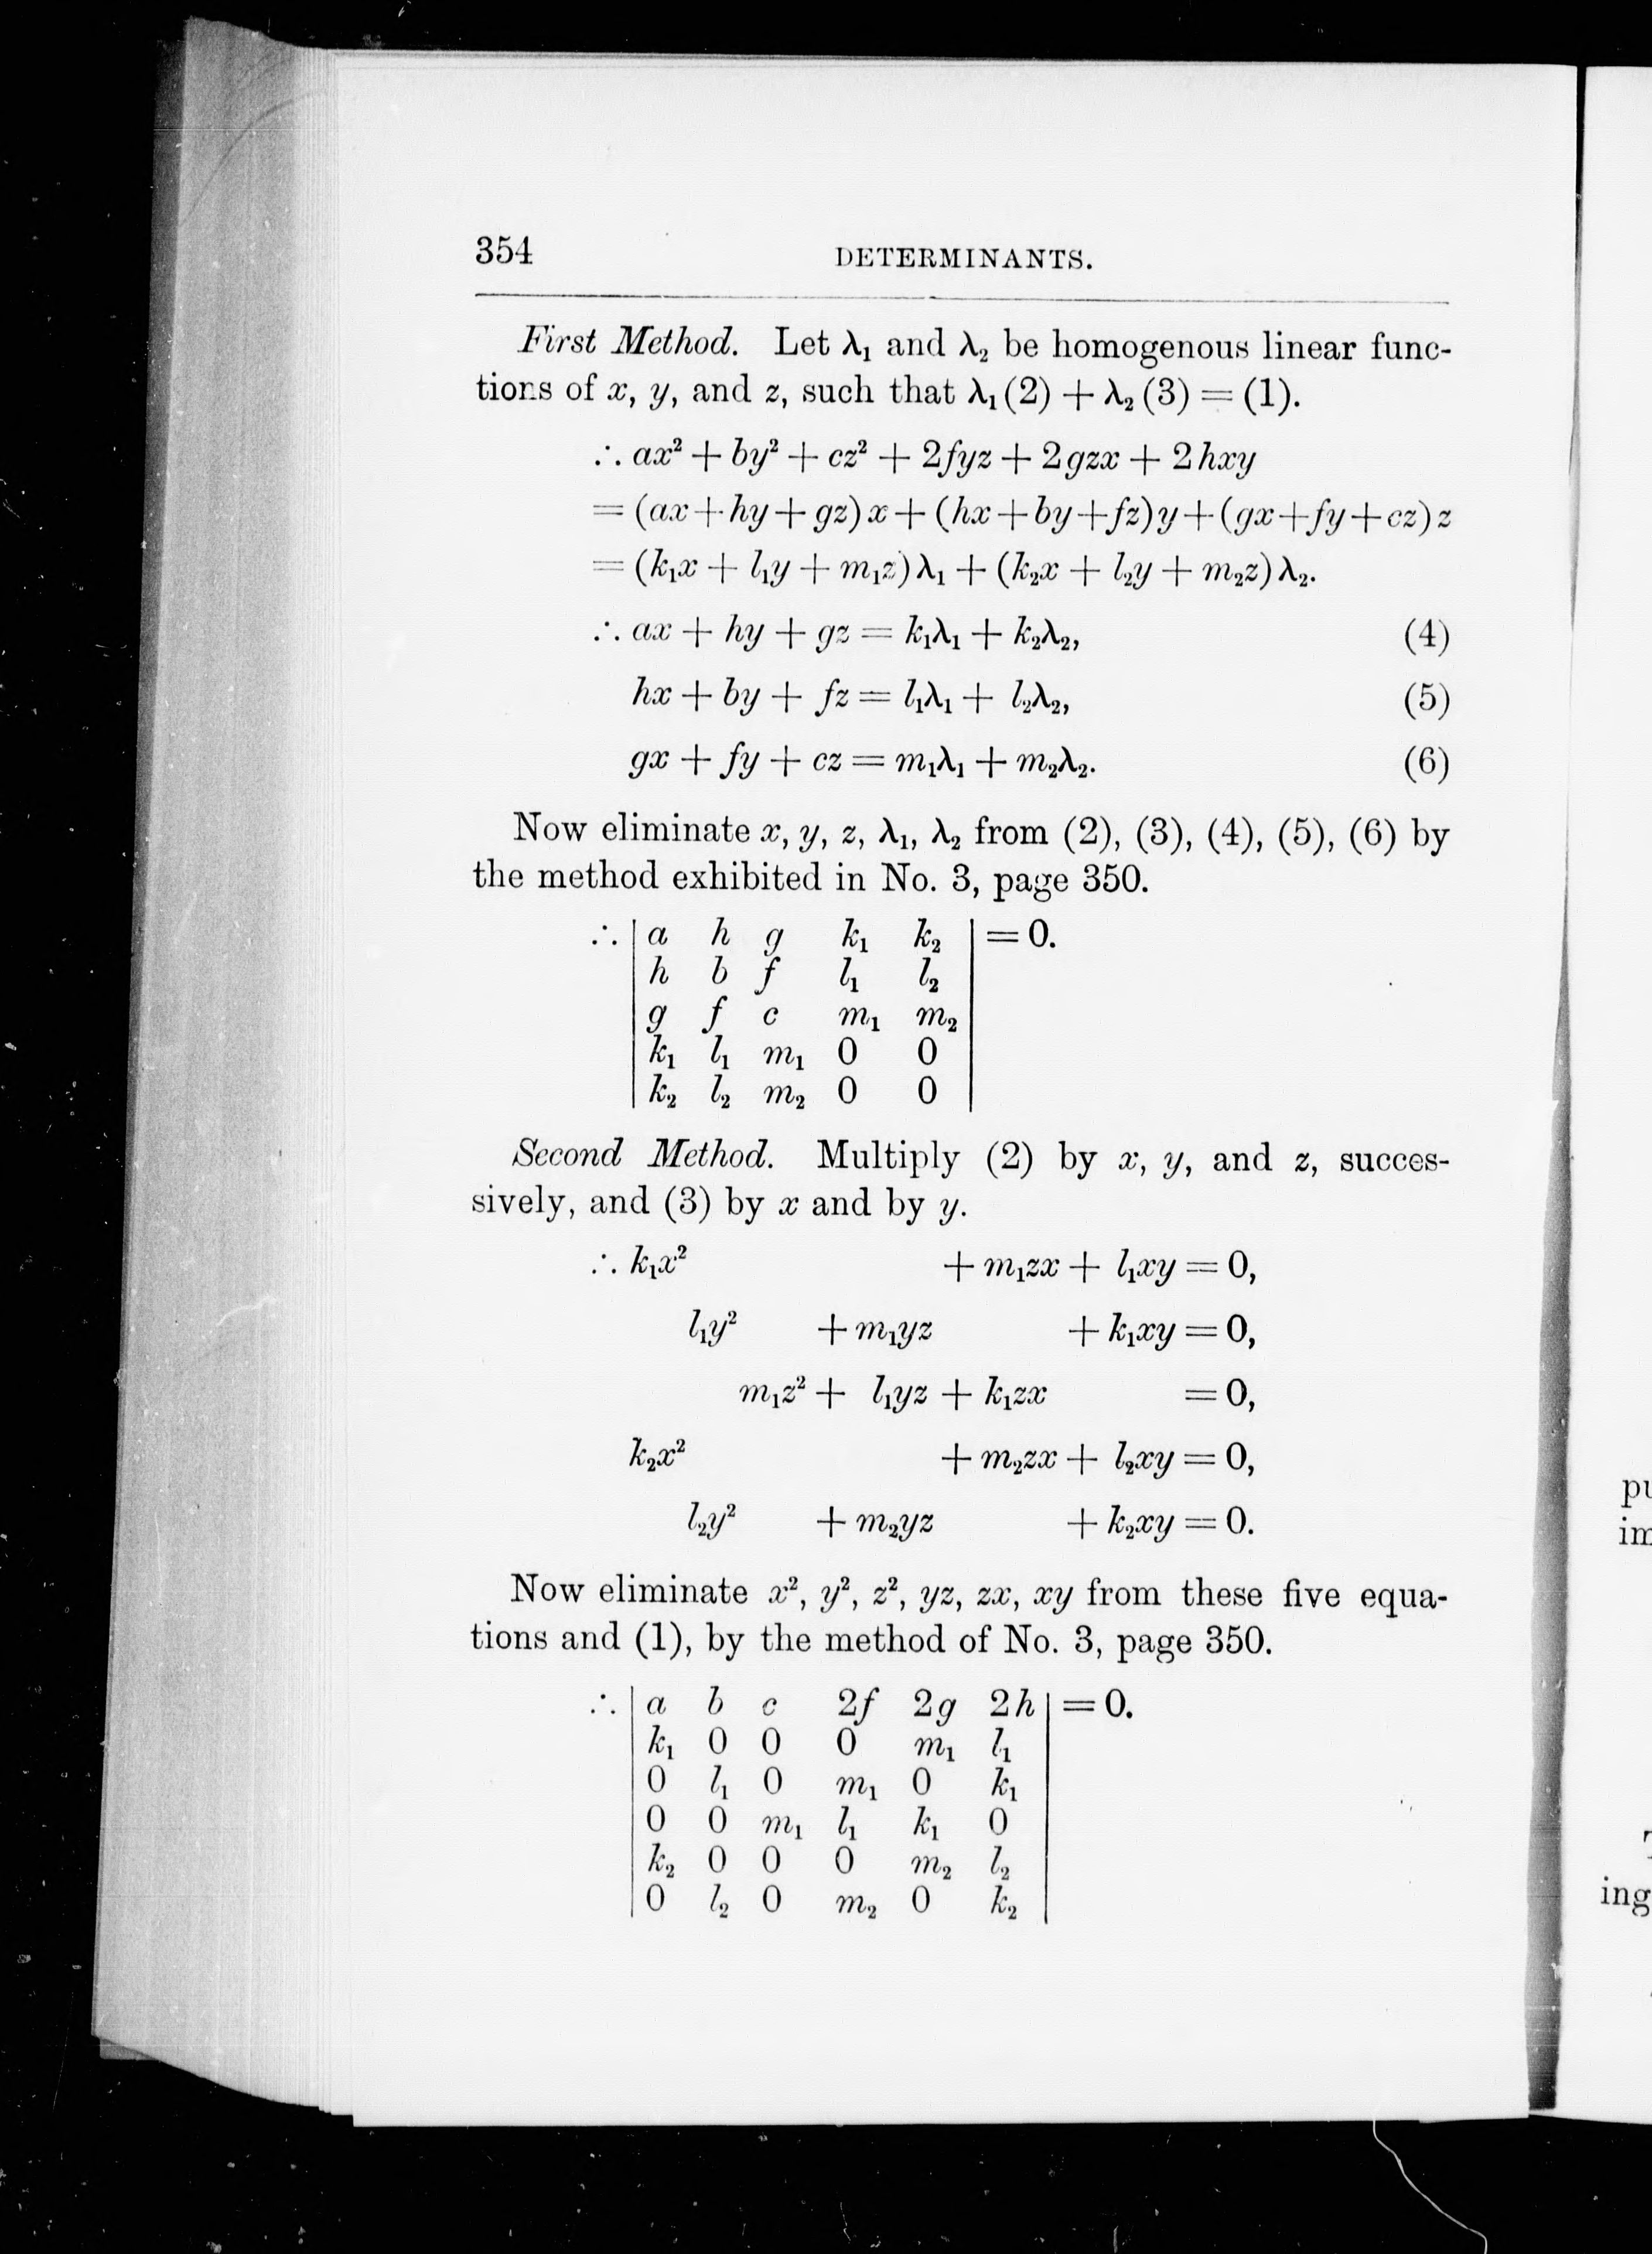 354 DETERMINANTS.
First Method. Let λ₁ and λ₂ be homogenous linear func-
tions of x, y, and z, such that λ₁ (2) + λ₂ (3) = (1).
∴ ax² + by² + cz² + 2fyz + 2gzx + 2hxy
= (ax + hy + gz) x + (hx + by + fz) y + (gx + fy + cz) z
= (k₁x + l₁y + m₁z) λ₁ + (k₂x + l₂y + m₂z) λ₂.
∴ ax + hy + gz = k₁λ₁ + k₂λ₂, (4)
hx + by + fz = l₁λ₁ + l₂λ₂, (5)
gx + fy + cz = m₁λ₁ + m₂λ₂. (6)
Now eliminate x, y, z, λ₁, λ₂ from (2), (3), (4), (5), (6) by
the method exhibited in No. 3, page 350.
∴ | a h g k₁ k₂ | = 0.
| h b f l₁ l₂ |
| g f c m₁ m₂ |
| k₁ l₁ m₁ 0 0 |
| k₂ l₂ m₂ 0 0 |
Second Method. Multiply (2) by x, y, and z, succes-
sively, and (3) by x and by y.
∴ k₁x² + m₁zx + l₁xy = 0,
l₁y² + m₁yz + k₁xy = 0,
m₁z² + l₁yz + k₁zx = 0,
k₂x² + m₂zx + l₂xy = 0,
l₂y² + m₂yz + k₂xy = 0.
Now eliminate x², y², z², yz, zx, xy from these five equa-
tions and (1), by the method of No. 3, page 350.
∴ | a b c 2f 2g 2h | = 0.
| k₁ 0 0 0 m₁ l₁ |
| 0 l₁ 0 m₁ 0 k₁ |
| 0 0 m₁ l₁ k₁ 0 |
| k₂ 0 0 0 m₂ l₂ |
| 0 l₂ 0 m₂ 0 k₂ |
im
ing